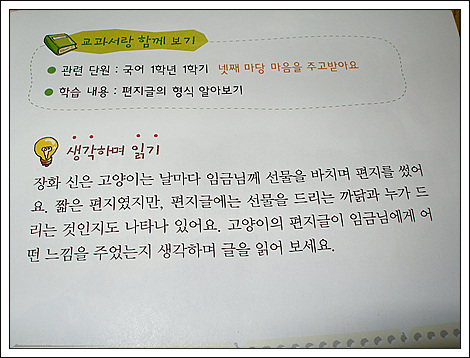 교과서랑 함께 보기
관련 단원 : 국어 1학년 1학기 넷째 마당 마음을 주고받아요
학습 내용 : 편지글의 형식 알아보기
생각하며 읽기
장화 신은 고양이는 날마다 임금님께 선물을 바치며 편지를 썼어
요. 짧은 편지였지만, 편지글에는 선물을 드리는 까닭과 누가 드
리는 것인지도 나타나 있어요. 고양이의 편지글이 임금님에게 어
떤 느낌을 주었는지 생각하며 글을 읽어 보세요.